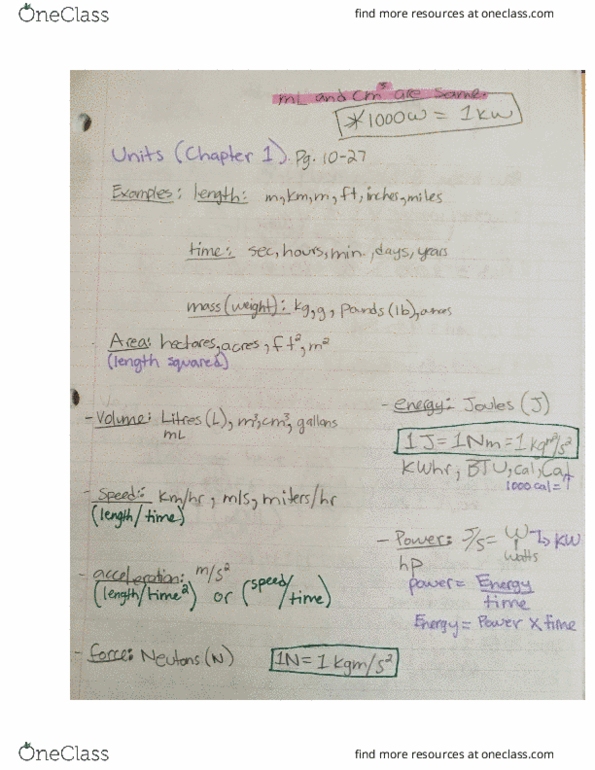 OneClass
find more resources at oneclass.com
mL and cm³ are same.
*1000W = 1kW
Units (Chapter 1). Pg. 10-27
Examples: length: m, km, m, ft, inches, miles
time: sec, hours, min., days, years
mass (weight): kg, g, pounds (lb),
Area: hectares, acres, ft², m²
(length squared)
- Volume: Litres (L), m³, cm³, gallons
mL
- Speed: km/hr, m/s, miters/hr
(length/time)
- acceleration: m/s²
(length/time²) or (speed/time)
- force: Neutons (N) 1N = 1 kgm/s²
- energy: Joules (J)
1J = 1Nm = 1 kgm²/s²
KWhr, BTU, cal, Cal
1000 cal = ↑
- Power: J/s = W → kW
Watts
hp
power = Energy/time
Energy = Power x time
OneClass
find more resources at oneclass.com